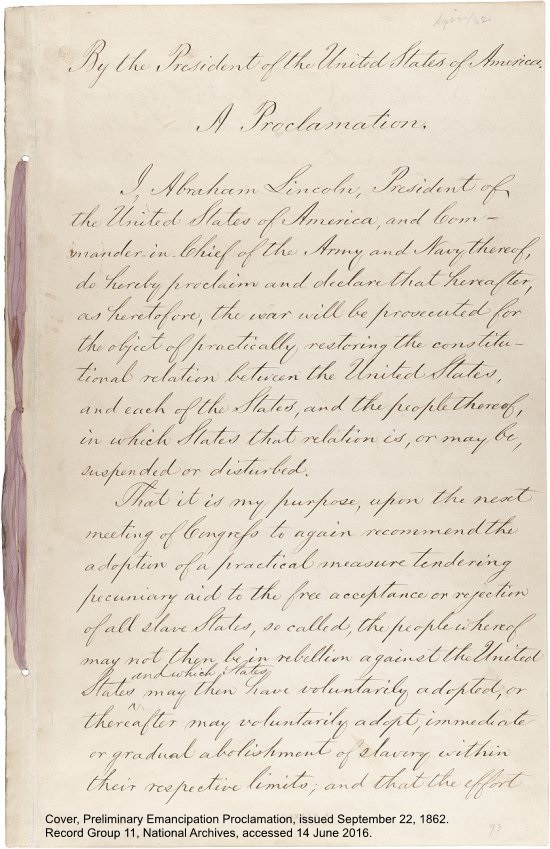 By the President of the United States of America.
A Proclamation.
I, Abraham Lincoln, President of
the United States of America, and Com-
mander-in-Chief of the Army and Navy thereof,
do hereby proclaim and declare that hereafter,
as heretofore, the war will be prosecuted for
the object of practically restoring the constitu-
tional relation between the United States,
and each of the States, and the people thereof,
in which States that relation is, or may be,
suspended or disturbed.
That it is my purpose, upon the next
meeting of Congress to again recommend the
adoption of a practical measure tendering
pecuniary aid to the free acceptance or rejection
of all slave States, so called, the people whereof
may not then be in rebellion against the United
and which States
States may then have voluntarily adopted, or
thereafter may voluntarily adopt, immediate
or gradual abolishment of slavery within
their respective limits; and that the effort
Cover, Preliminary Emancipation Proclamation, issued September 22, 1862.
Record Group 11, National Archives, accessed 14 June 2016.